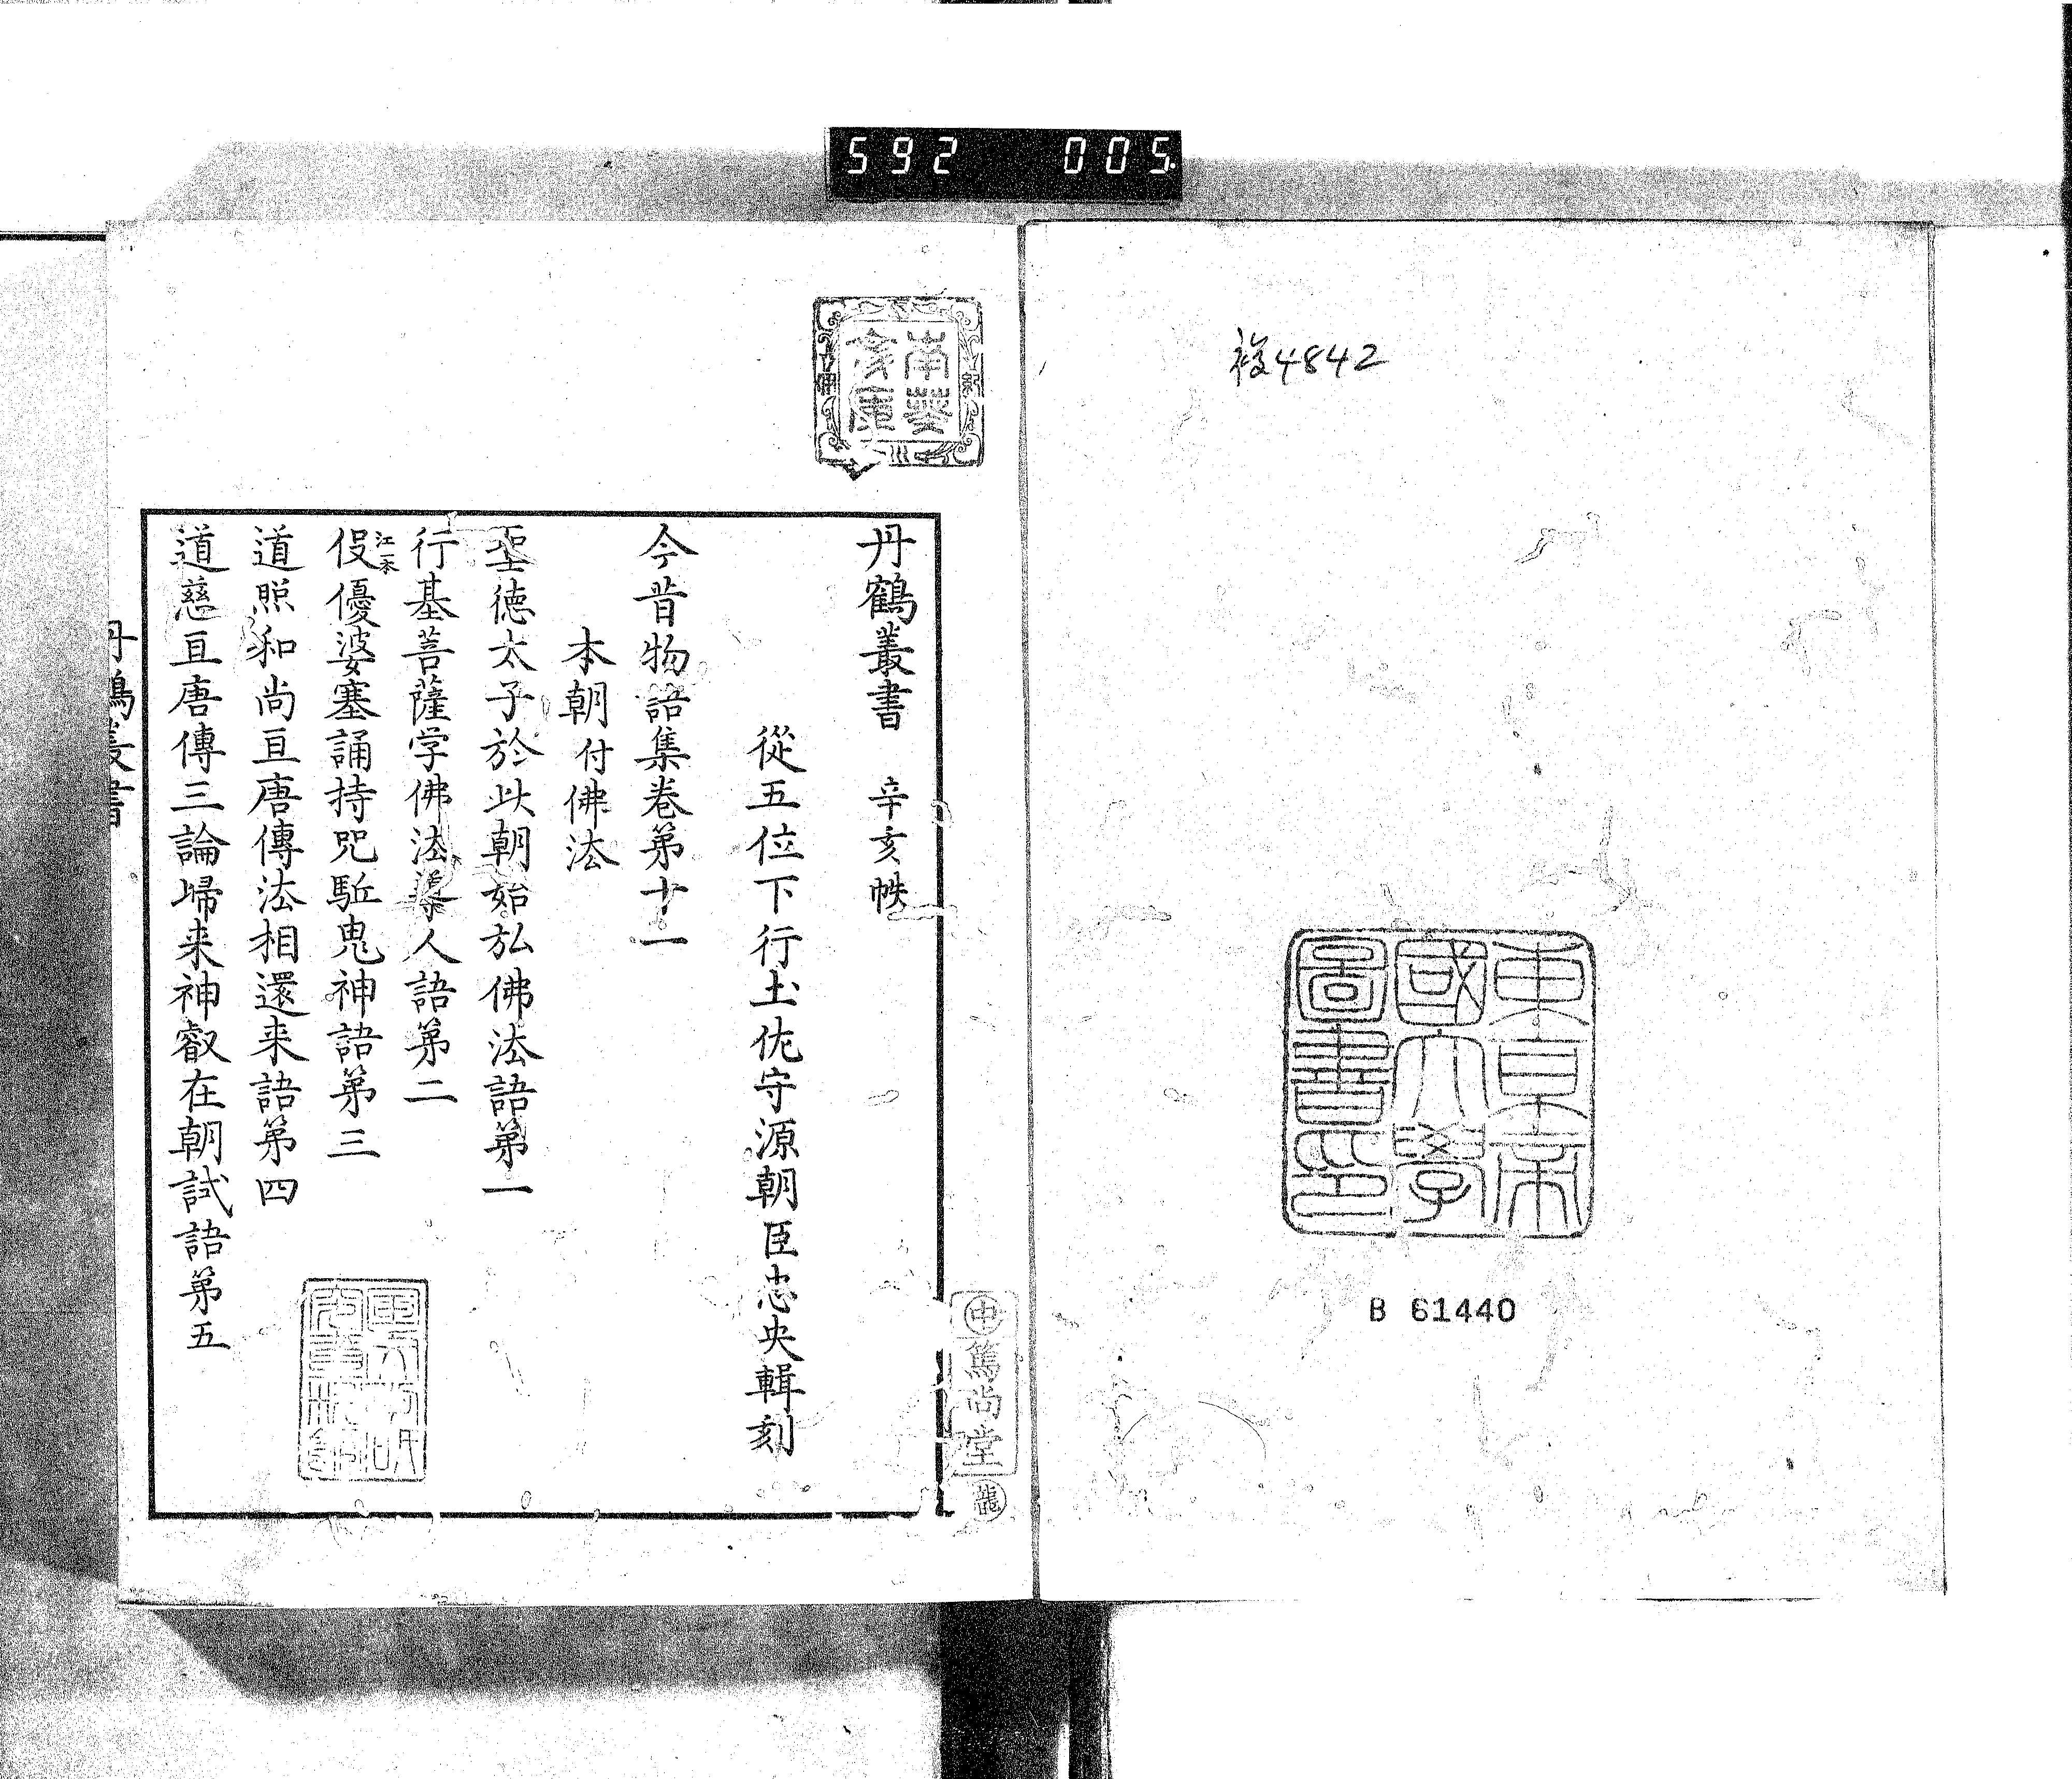 592 005
複4842
東京帝
國大學
圖書印
B 61440
南葵
文庫
紀
伊
丹鶴叢書 辛亥帙
從五位下行土佐守源朝臣忠央輯刻
今昔物語集卷第十一
本朝付佛法
聖徳太子於此朝始弘佛法語第一
行基菩薩学佛法導人語第二
役優婆塞誦持咒駈鬼神語第三
江本
道照和尚亘唐傳法相還来語第四
道慈亘唐傳三論歸来神叡在朝試語第五
申
篤尚堂
龍
丹鶴叢書